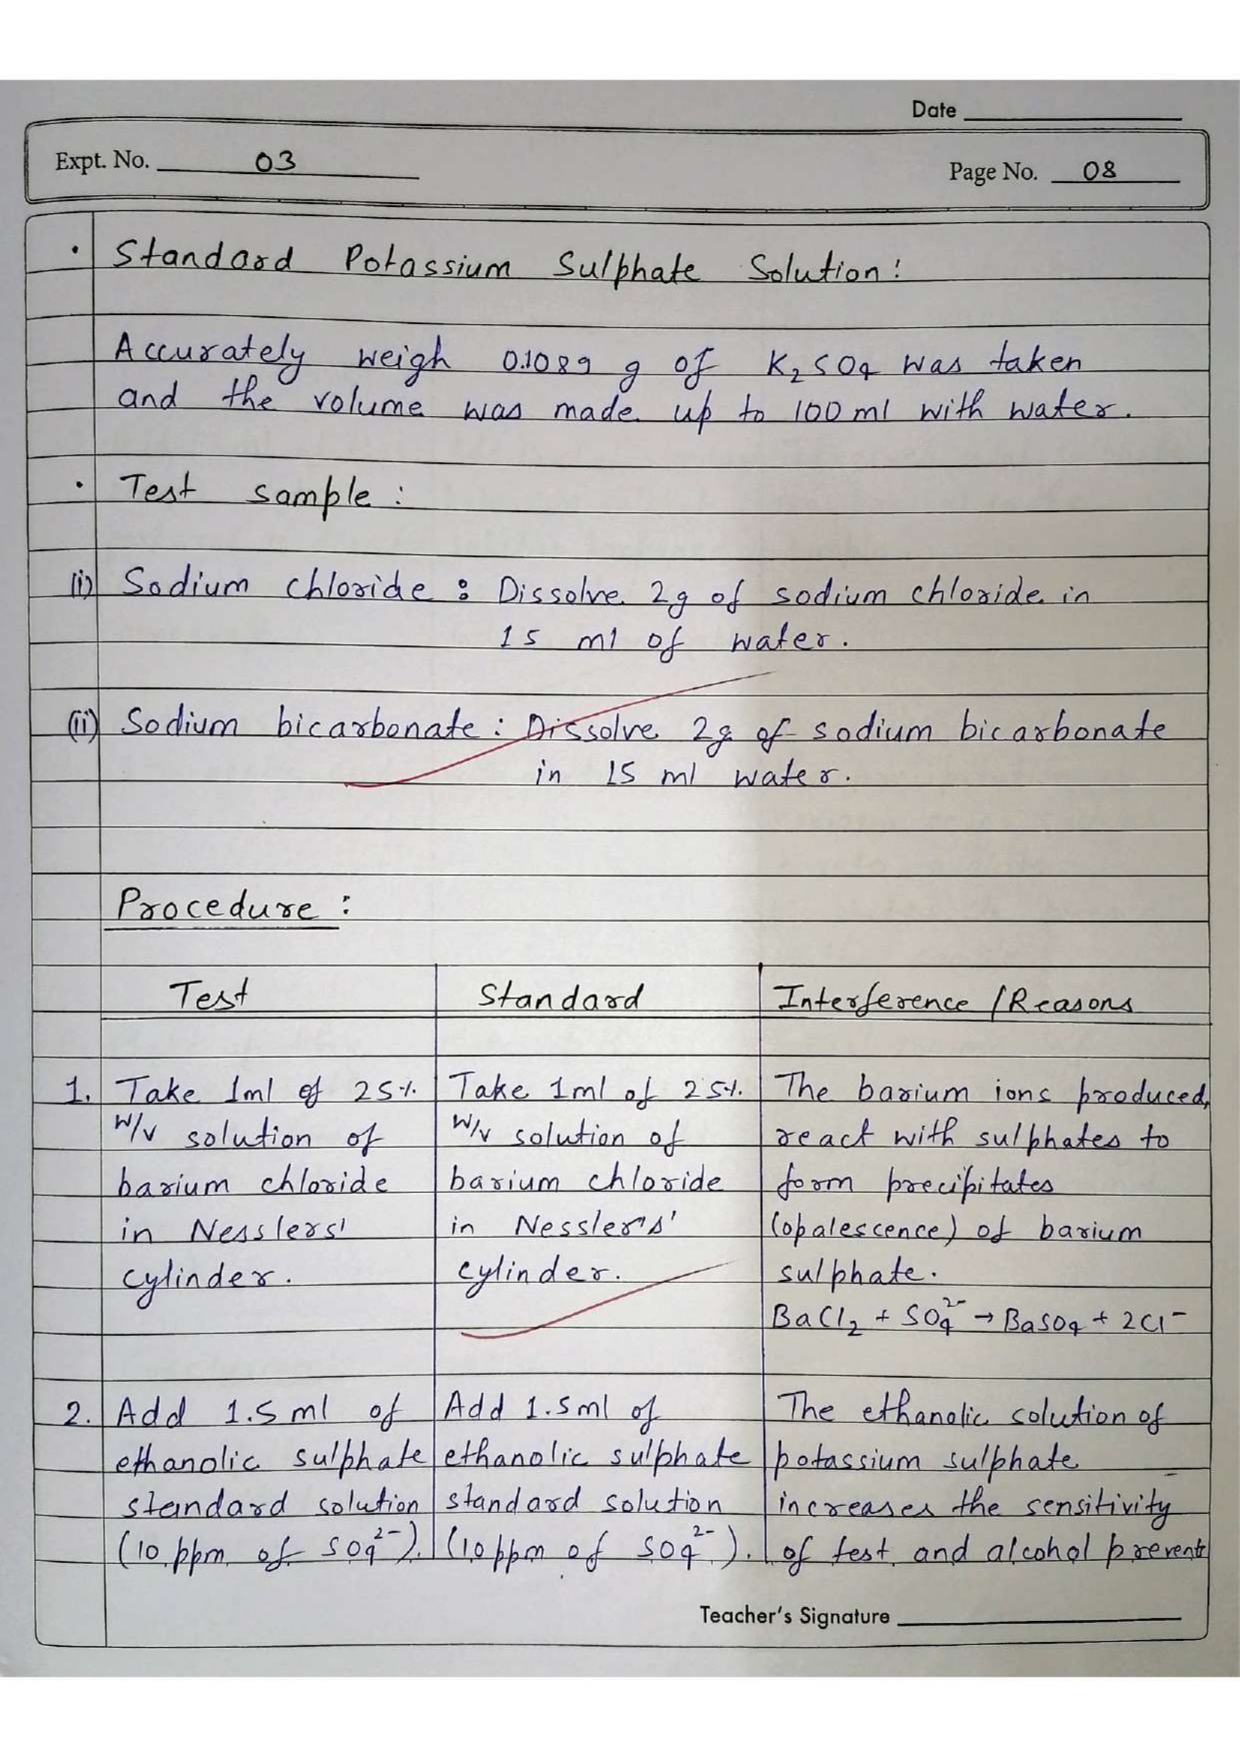 Date
Expt. No. 03
Page No. 08
• Standard Potassium Sulphate Solution:
Accurately weigh 0.1089 g of K₂SO₄ was taken
and the volume was made up to 100 ml with water.
• Test sample:
(i) Sodium chloride: Dissolve 2g of sodium chloride in
15 ml of water.
(ii) Sodium bicarbonate: Dissolve 2g of sodium bicarbonate
in 15 ml water.
Procedure:
Test Standard Interference/Reasons
1. Take 1ml of 25%
w/v solution of
barium chloride
in Nesslers'
cylinder.
Take 1ml of 25%
w/v solution of
barium chloride
in Nessler's'
cylinder.
The barium ions produced,
react with sulphates to
form precipitates
(opalescence) of barium
sulphate.
BaCl₂ + SO₄²⁻ → BaSO₄ + 2Cl⁻
2. Add 1.5 ml of
ethanolic sulphate
standard solution
(10 ppm of SO₄²⁻).
Add 1.5ml of
ethanolic sulphate
standard solution
(10 ppm of SO₄²⁻).
The ethanolic solution of
potassium sulphate
increases the sensitivity
of test and alcohol prevents
Teacher's Signature